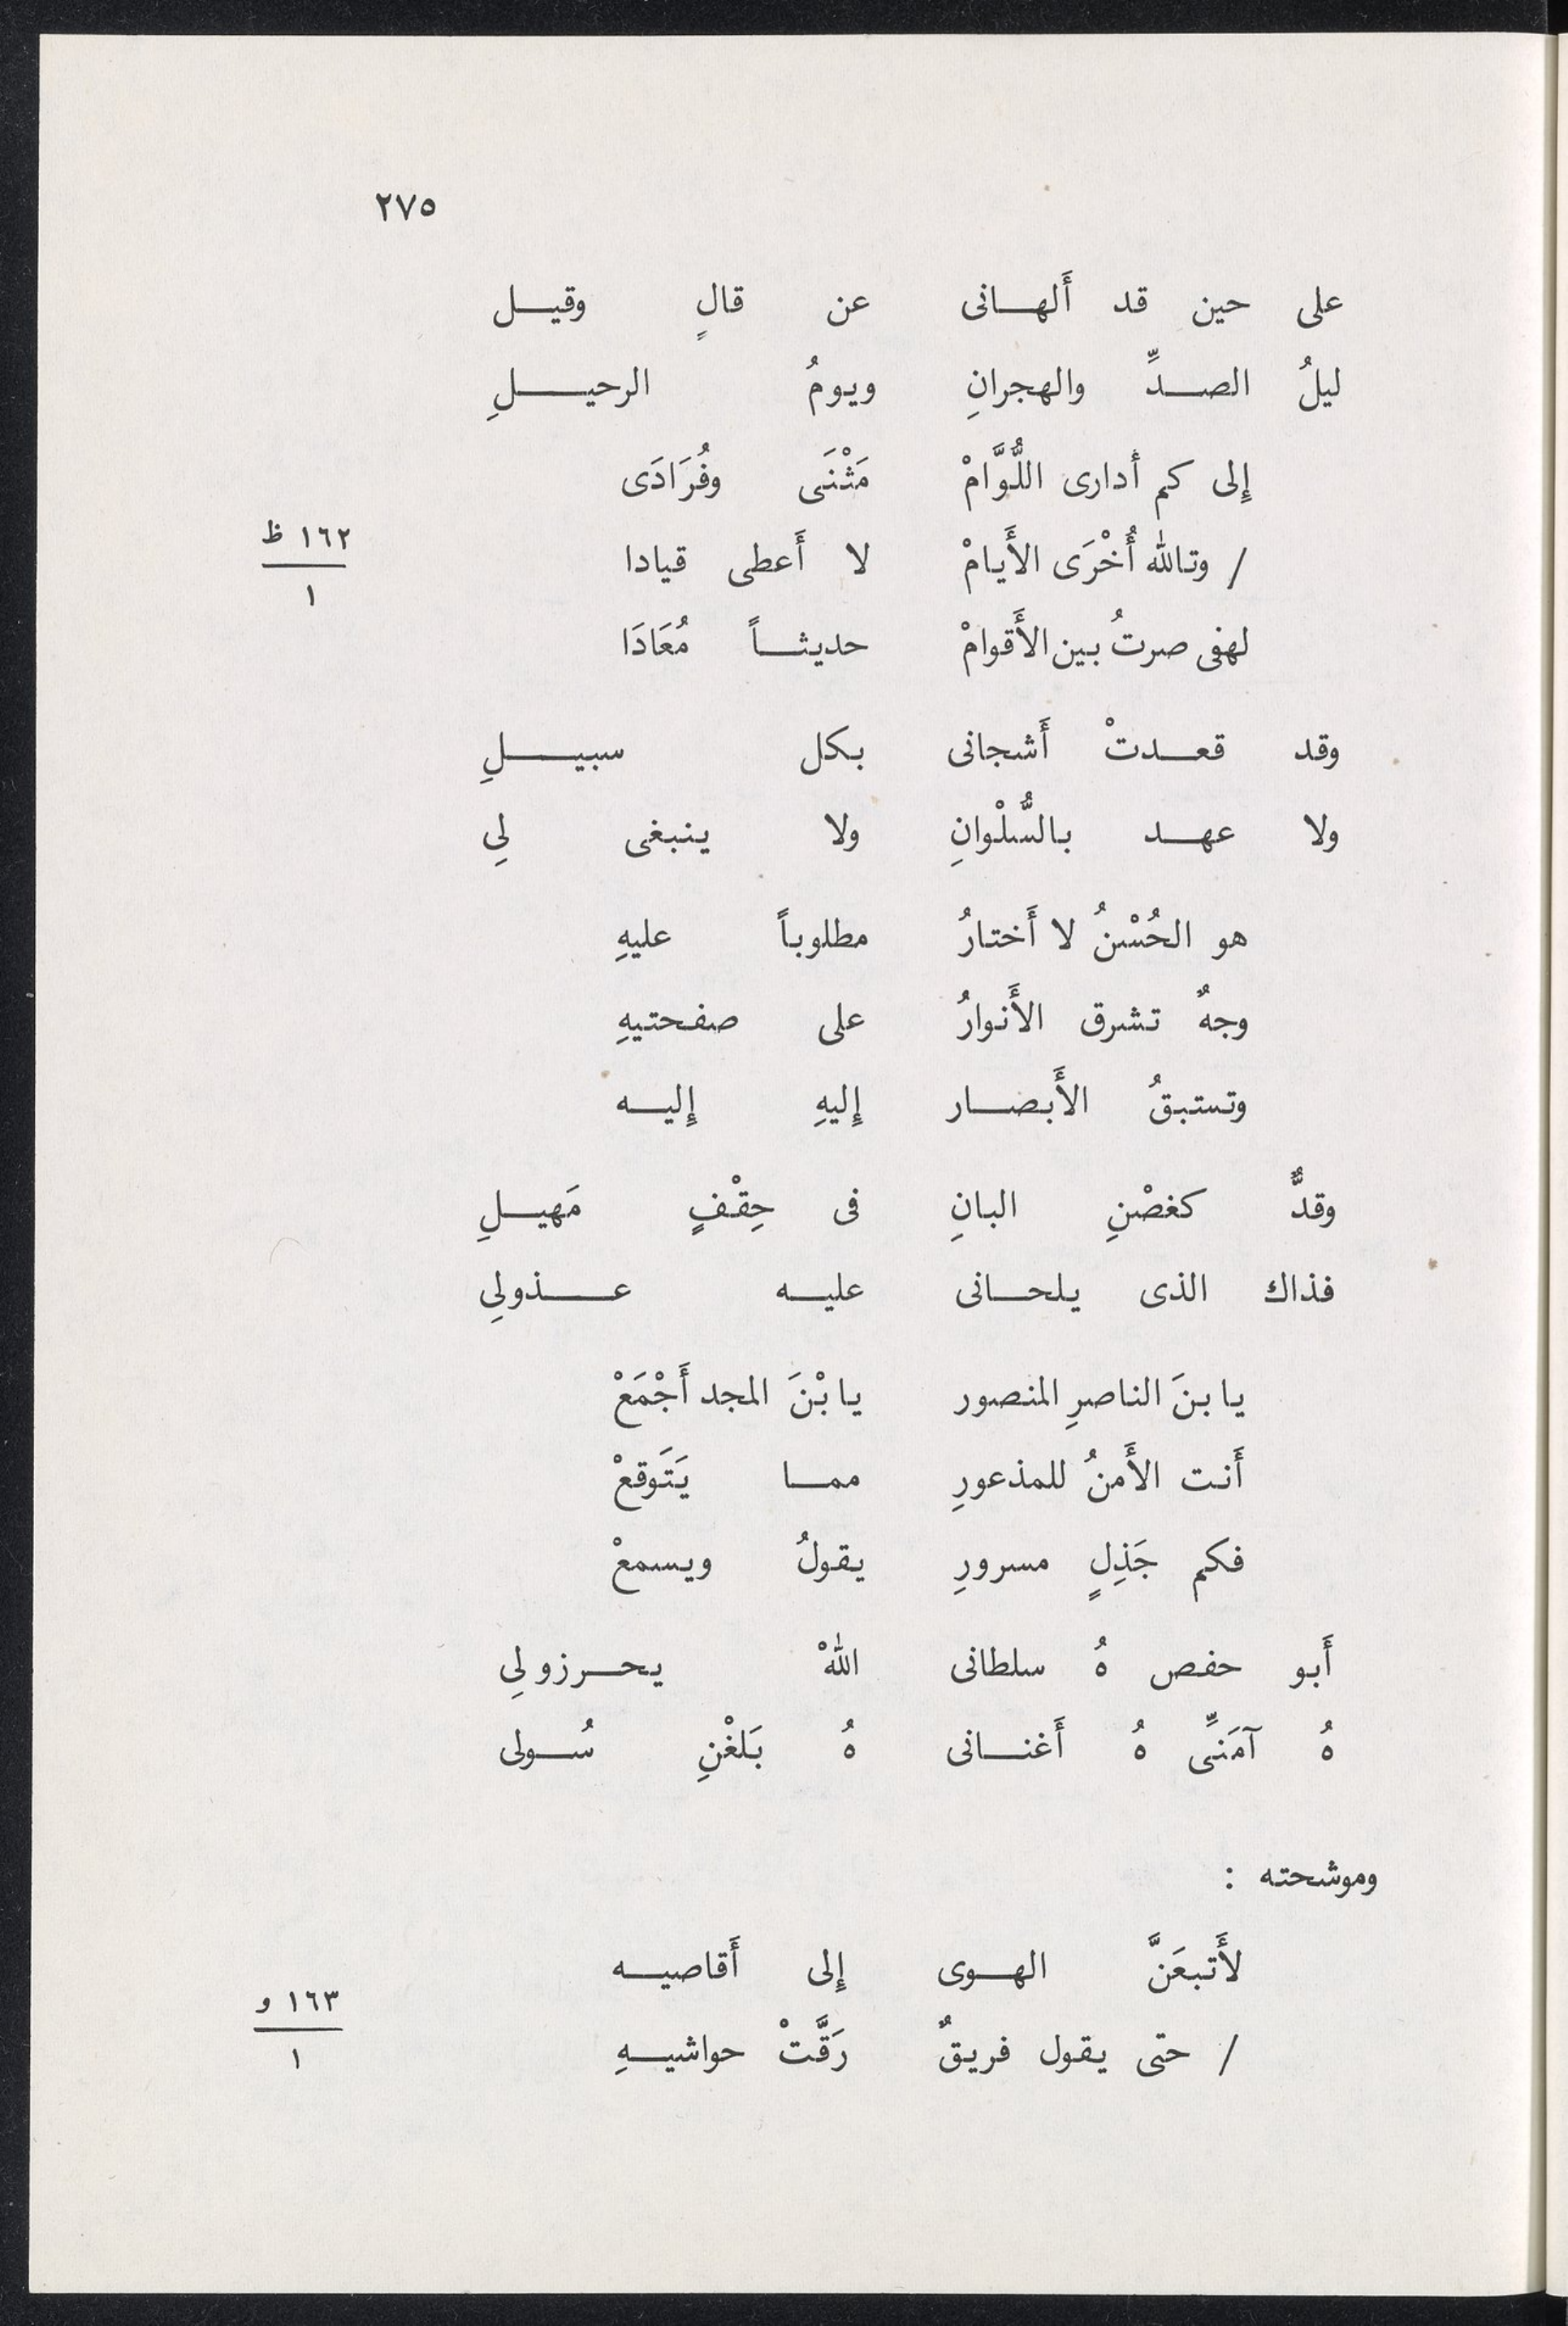 ٢٧٥
على حين قد أَلهانى عن قالٍ وقيل
ليلُ الصدِّ والهجرانِ ويومُ الرحيلِ
إِلى كم أدارى اللُّوَّامْ مَثْنَى وفُرَادَى
١٦٢ ظ
/ وتالله أُخْرَى الأَيامْ لا أَعطى قيادا
١
لهفى صرتُ بين الأَقوامْ حديثاً مُعَادَا
وقد قعدتْ أَشجانى بكل سبيلِ
ولا عهد بالسُّلْوانِ ولا ينبغى لِى
هو الحُسْنُ لا أَختارُ مطلوباً عليهِ
وجهٌ تشرق الأَنوارُ على صفحتيهِ
وتستبقُ الأَبصار إِليهِ إِليه
وقدٌّ كغصْنِ البانِ فى حِقْفٍ مَهيلِ
فذاك الذى يلحانى عليه عذولِى
يا بنَ الناصرِ المنصور يا بْنَ المجد أَجْمَعْ
أَنت الأَمنُ للمذعورِ مما يَتَوقعْ
فكم جَذِلٍ مسرورِ يقولُ ويسمعْ
أَبو حفص هُ سلطانى اللهْ يحرزو لِى
هُ آمَنِّى هُ أَغنانى هُ بَلغْنِ سُولى
وموشحته :
لأَتبعَنَّ الهوى إِلى أَقاصيه
١٦٣ و
/ حتى يقول فريقٌ رَقَّتْ حواشيهِ
١